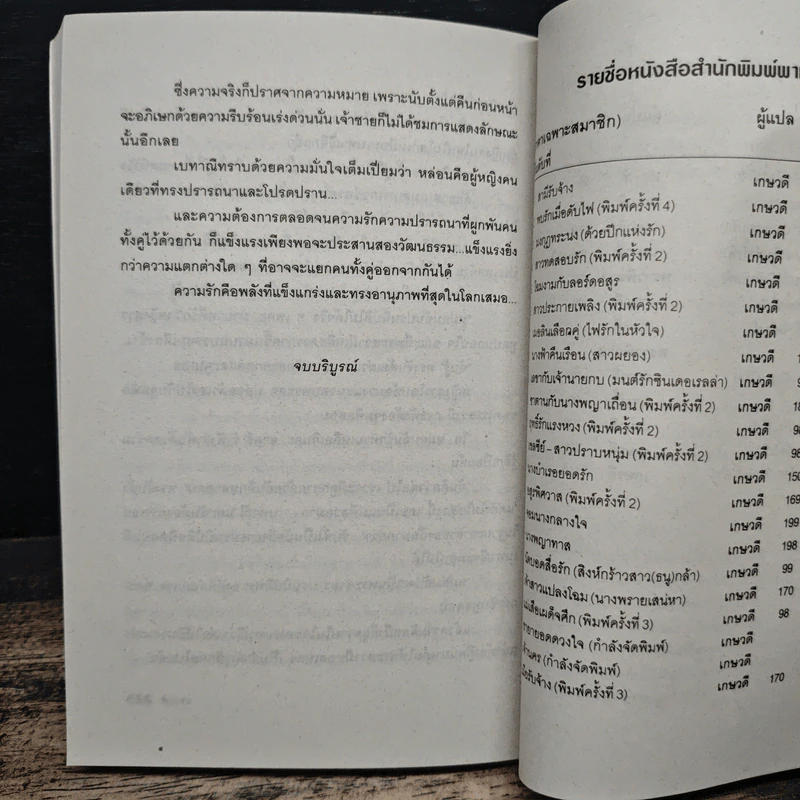 ซึ่งความจริงก็ปราศจากความหมาย เพราะนับตั้งแต่คืนก่อนหน้า
จะอภิเษกด้วยความรีบร้อนเร่งด่วนนั่น เจ้าชายก็ไม่ได้ชมการแสดงลักษณะ
นั้นอีกเลย
เบทาณีทราบด้วยความมั่นใจเต็มเปี่ยมว่า หล่อนคือผู้หญิงคน
เดียวที่ทรงปรารถนาและโปรดปราน...
และความต้องการตลอดจนความรักความปรารถนาที่ผูกพันคน
ทั้งคู่ไว้ด้วยกัน ก็แข็งแรงเพียงพอจะประสานสองวัฒนธรรม...แข็งแรงยิ่ง
กว่าความแตกต่างใด ๆ ที่อาจจะแยกคนทั้งคู่ออกจากกันได้
ความรักคือพลังที่แข็งแกร่งและทรงอานุภาพที่สุดในโลกเสมอ...
จบบริบูรณ์
รายชื่อหนังสือสำนักพิมพ์
เฉพาะสมาชิก) ผู้แปล
รับจ้าง เกษวดี
พบรักเมื่อดับไฟ (พิมพ์ครั้งที่ 4) เกษวดี
มงกุฎทระนง (ด้วยปีกแห่งรัก) เกษวดี
สาวทดสอบรัก (พิมพ์ครั้งที่ 2) เกษวดี
โฉมงามกับลอร์ดอสูร เกษวดี
สาวประกายเพลิง (พิมพ์ครั้งที่ 2) เกษวดี
เลือกคู่ (ไฟรักในหัวใจ) เกษวดี
นางฟ้าคืนเรือน (สาวผยอง) เกษวดี
เลขากับเจ้านายกบ (มนต์รักซินเดอเรลล่า) เกษวดี
กับนางพญาเถื่อน (พิมพ์ครั้งที่ 2) เกษวดี
ฤทธิ์รักแรงหวง (พิมพ์ครั้งที่ 2) เกษวดี
- สาวปราบหนุ่ม (พิมพ์ครั้งที่ 2) เกษวดี
นางบำเรอยอดรัก เกษวดี 150
อสูรพิศวาส (พิมพ์ครั้งที่ 2) เกษวดี 169
จอมนางกลางใจ เกษวดี 199
นางพญาทาส เกษวดี 198
ยอดสื่อรัก (สิงห์กร้าวสาว(ธนู)กล้า) เกษวดี 99
สาวแปลงโฉม (นางพรายเสน่หา) เกษวดี 170
แม่เสือเผด็จศึก (พิมพ์ครั้งที่ 3) เกษวดี 98
ยอดดวงใจ (กำลังจัดพิมพ์) เกษวดี
(กำลังจัดพิมพ์) เกษวดี
รับจ้าง (พิมพ์ครั้งที่ 3) เกษวดี 170